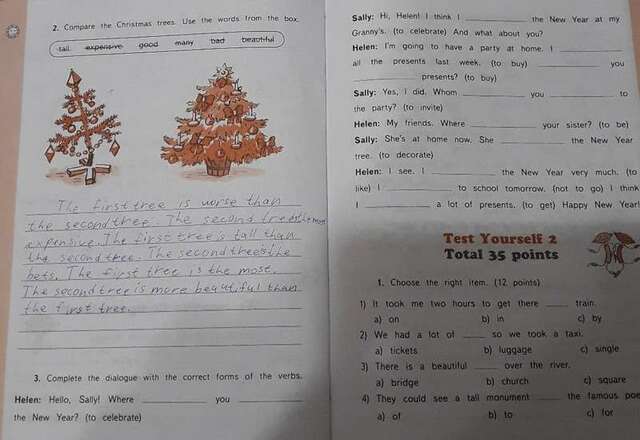 2. Compare the Christmas trees. Use the words from the box.
tall expensive good many bad beautiful
The first tree is worse than
the second tree. The second tree is the most
expensive. The first tree's tall than
the second tree. The second tree's the
bets. The first tree is the most.
The second tree is more beautiful than
the first tree.
3. Complete the dialogue with the correct forms of the verbs.
Helen: Hello, Sally! Where ________ you ________
the New Year? (to celebrate)
Sally: Hi, Helen! I think I ________ the New Year at my
Granny's. (to celebrate) And what about you?
Helen: I'm going to have a party at home. I ________
all the presents last week. (to buy) ________ you
________ presents? (to buy)
Sally: Yes, I did. Whom ________ you ________ to
the party? (to invite)
Helen: My friends. Where ________ your sister? (to be)
Sally: She's at home now. She ________ the New Year
tree. (to decorate)
Helen: I see. I ________ the New Year very much. (to
like) I ________ to school tomorrow. (not to go) I think
I ________ a lot of presents. (to get) Happy New Year!
Test Yourself 2
Total 35 points
1. Choose the right item. (12 points)
1) It took me two hours to get there ____ train.
a) on b) in c) by
2) We had a lot of ____ so we took a taxi.
a) tickets b) luggage c) single
3) There is a beautiful ____ over the river.
a) bridge b) church c) square
4) They could see a tall monument ____ the famous poe
a) of b) to c) for